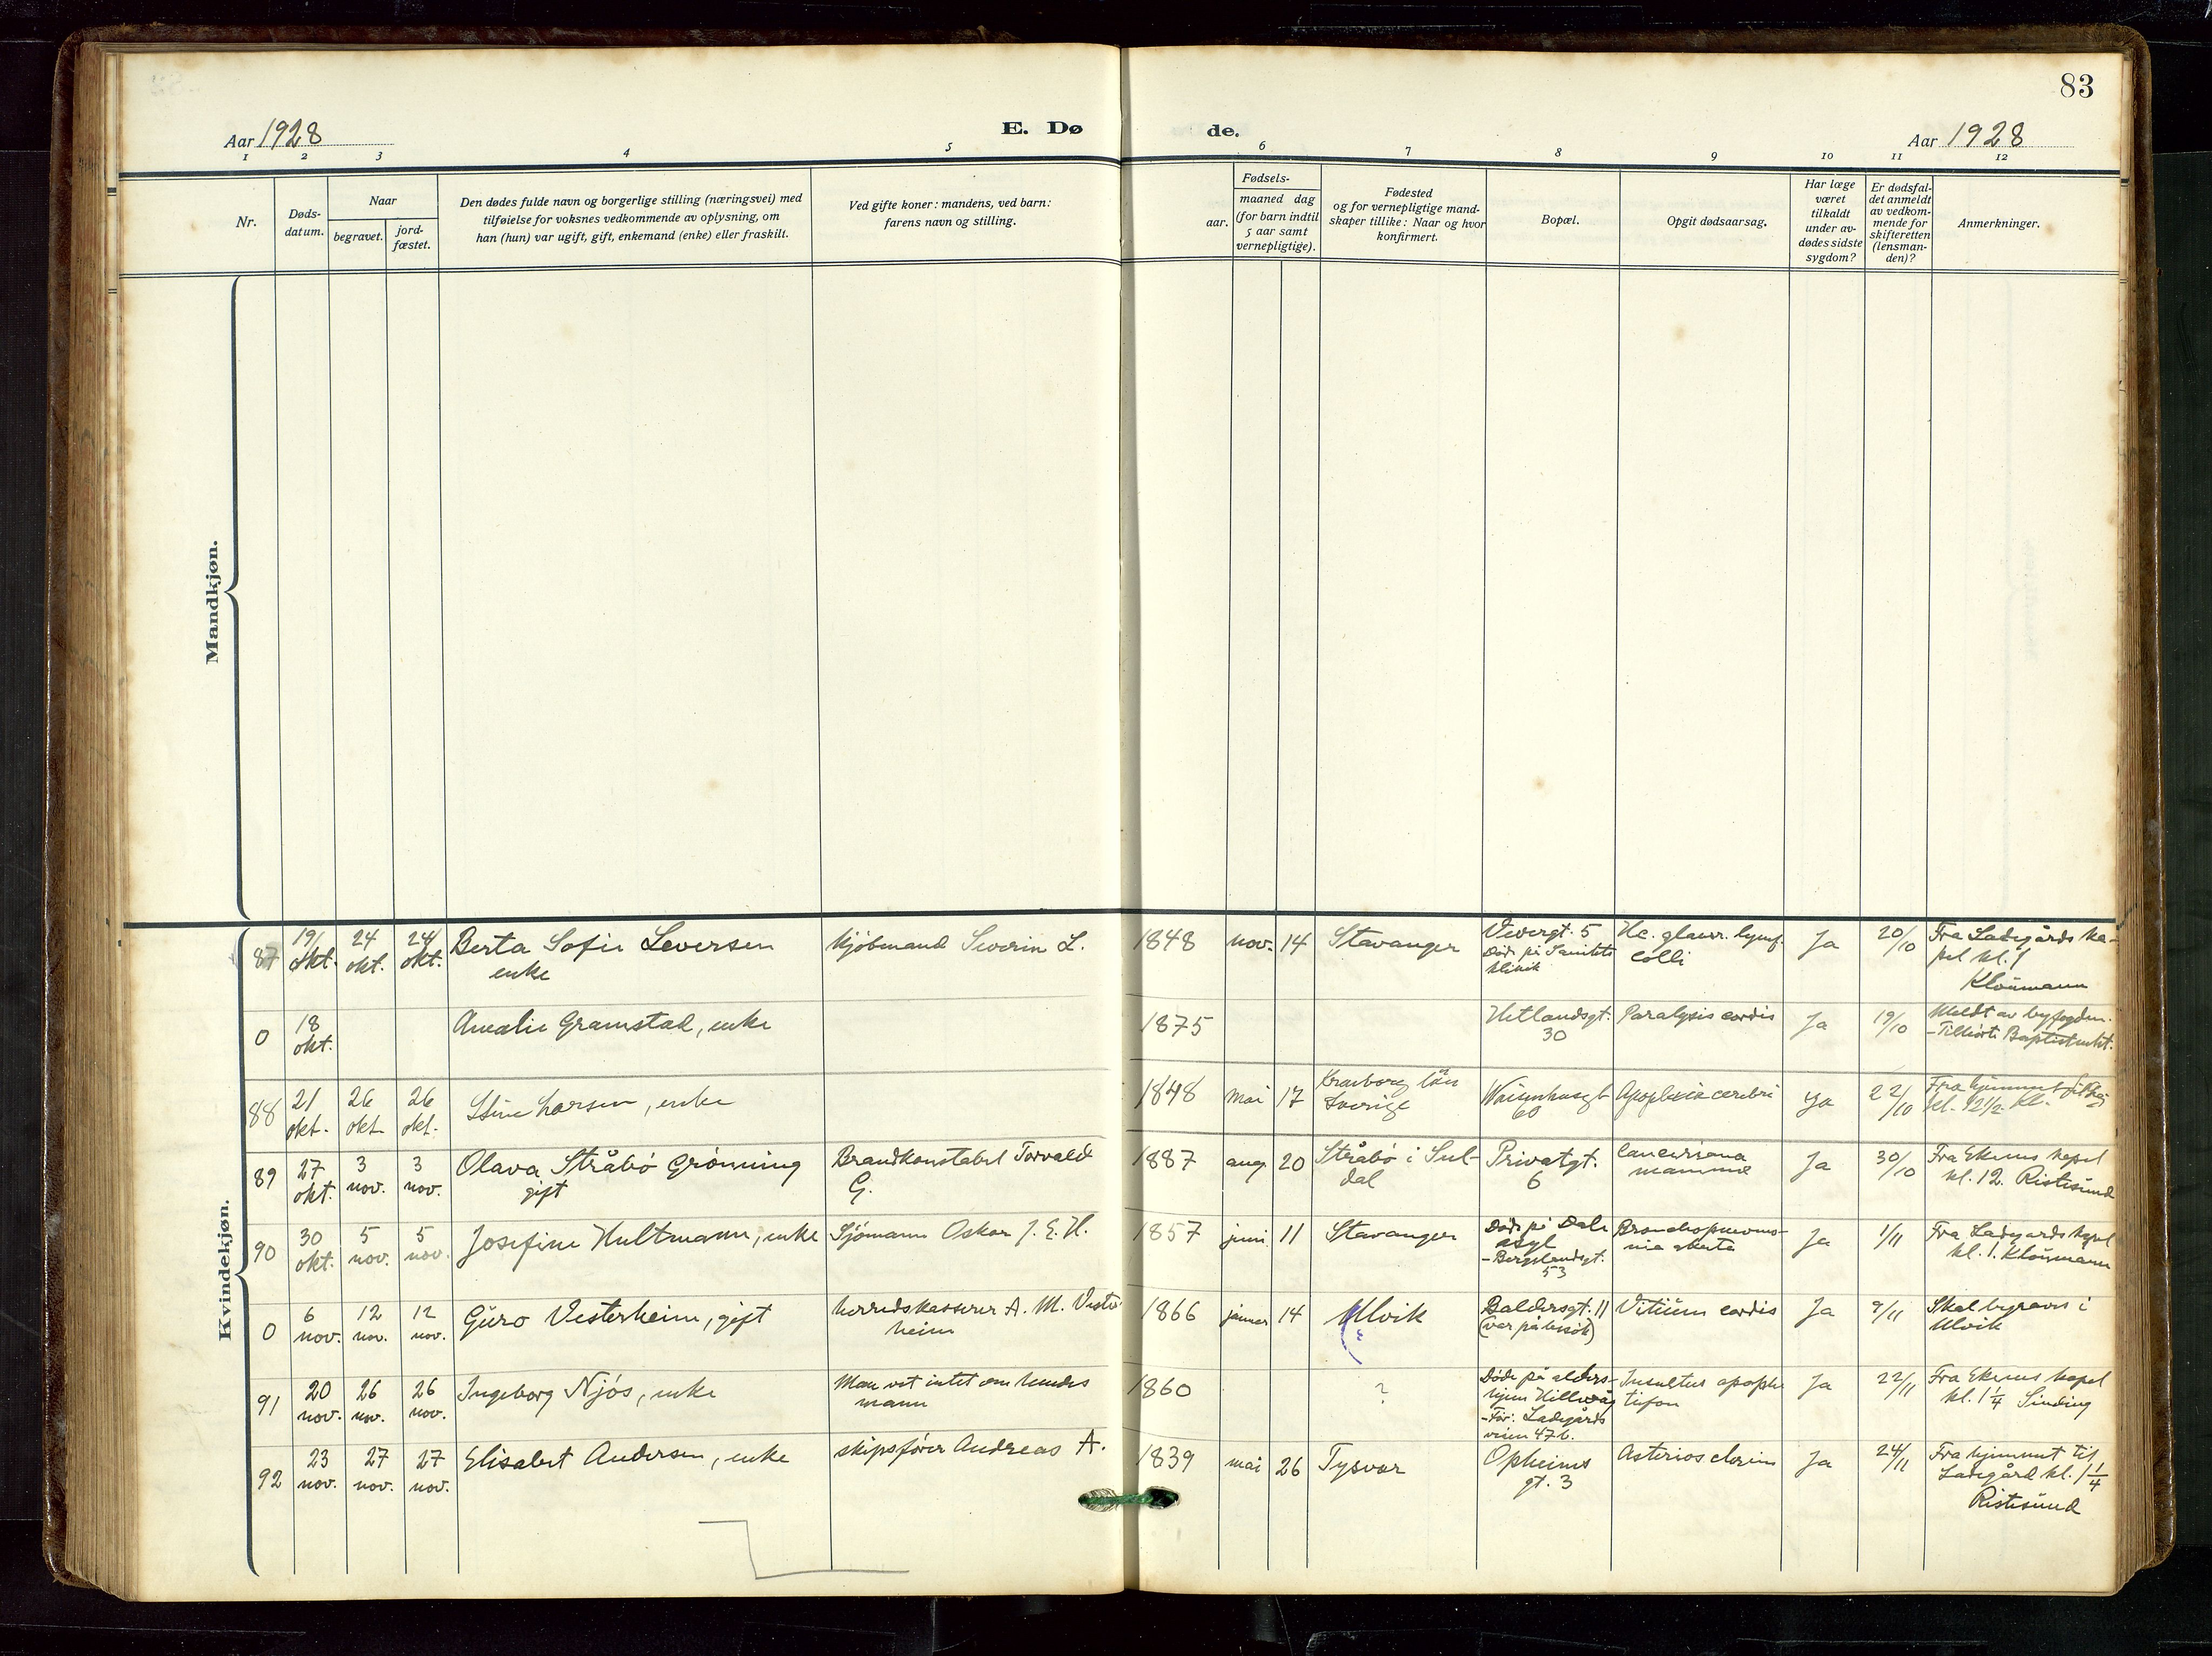 83
Aar 1928
E. Dø
de.
Aar 1928
1 2 3 4 5 6 7 8 9 10 11 12
Nr.
Døds-
datum.
Naar
begravet.
jord-
fæstet.
Den dødes fulde navn og borgerlige stilling (næringsvei) med
tilføielse for voksnes vedkommende av oplysning, om
han (hun) var ugift, gift, enkemand (enke) eller fraskilt.
Ved gifte koner: mandens, ved barn:
farens navn og stilling.
Fødsels-
aar.
maaned dag
(for barn indtil
5 aar samt
vernepligtige).
Fødested
og for vernepligtige mand-
skaper tillike: Naar og hvor
konfirmert.
Bopæl.
Opgit dødsaarsag.
Har læge
været
tilkaldt
under av-
dødes sidste
sygdom?
Er dødsfal-
det anmeldt
av vedkom-
mende for
skifteretten
(lensman-
den)?
Anmerkninger.
Mandkjøn.
Kvindekjøn.
87
19/
okt.
24
okt.
24/
okt.
Berta Sofie Seversen
enke
Kjøbmand Severin S.
1848 nov. 14 Stavanger
Vevergt. 5
Død på Sanitets
klinik
colli
Ja
20/10
Fra Ladegårds ka-
pel kl. 1
Kloumann
0
18
okt.
Amalie Gramstad, enke
1875
Hetlandsgt.
30
Paralysis cordis
Ja
19/10
Meldt av byfogden.
-Tilhørte Baptistmht.
88
21
okt.
26
okt
26
okt.
Stine Larsen, enke
1848 mai 17
län
Sverige
Waisenhusgt
60
Apoplexia cerebri
Ja
22/10
Fra hjemmet
kl. 12 1/2
89
27
okt.
3
nov.
3
nov.
Olava Stråbø Grønning
gift
Brandkonstabel Torvald
G.
1887 aug. 20
Stråbø i Sul-
dal
Privatgt.
6
mammae
Ja
30/10
Fra Ekenes kapel
kl. 12. Ristesund
90
30
okt.
5
nov.
5
nov.
Josefine Hultmann, enke
Sjømann Oskar J. E. H.
1857 juni 11 Stavanger
Døde på Dale
asyl
-Bergelandsgt.
53
Bronchopneumo-
nia
Ja
1/11
Fra Ladegårds kapel
kl. 1. Kloumann
0
6
nov.
12
nov.
12
nov.
Guro Vesterheim, gift
herredskasserer A. M. Vester
heim
1866 januar 14 Ulvik
Baldersgt. 11
(var på besøk)
Vitium cordis
Ja
9/11
Skal begraves i
Ulvik
91
20
nov.
26
nov.
26
nov.
Ingeborg Njøs, enke
Man vet intet om hendes
mann
1860
?
Døde på alders-
hjem Hillevåg
-Før: Ladegårds
veien 47 b.
Insultus apople
Ja
22/11
Fra Ekenes kapel
kl. 1 1/4 Sinding
92
23
nov.
27
nov.
27
nov.
Elisabet Andersen, enke
skipsfører Andreas A.
1839 mai 26 Tysvær
Opheims
gt. 3
Ja
24/11
Fra hjemmet til
Ladegård kl. 1 1/4
Ristesund